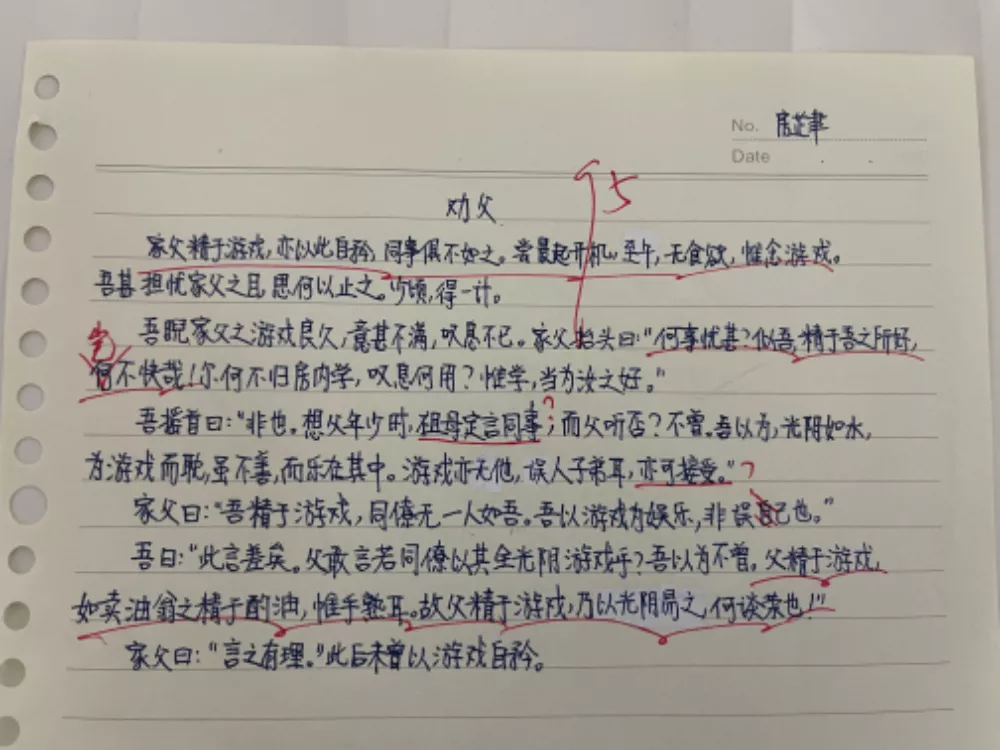 No. 房芷聿
Date
95
劝父
家父精于游戏,亦以此自矜,同事俱不如之。尝晨起开机,至午,无食欲,惟念游戏。
吾甚担忧家父之目,思何以止之。少顷,得一计。
吾睨家父之游戏良久,意甚不满,叹息不已。家父抬头曰:“何事忧甚?似吾,精于吾之所好,
何不快哉!尔何不归房内学,叹息何用?惟学,当为汝之好。”
吾摇首曰:“非也。想父年少时,祖母定言同事?;而父听否?不曾。吾以为,光阴如水,
为游戏而耽,虽不善,而乐在其中。游戏亦无他,误人子弟耳,亦可接受。”?
家父曰:“吾精于游戏,同僚无一人如吾。吾以游戏为娱乐,非误己也。”
吾曰:“此言差矣。父敢言若同僚以其全光阴游戏乎?吾以为不曾。父精于游戏,
如卖油翁之精于酌油,惟手熟耳。故父精于游戏,乃以光阴易之,何谈荣也!”
家父曰:“言之有理。”此后未曾以游戏自矜。